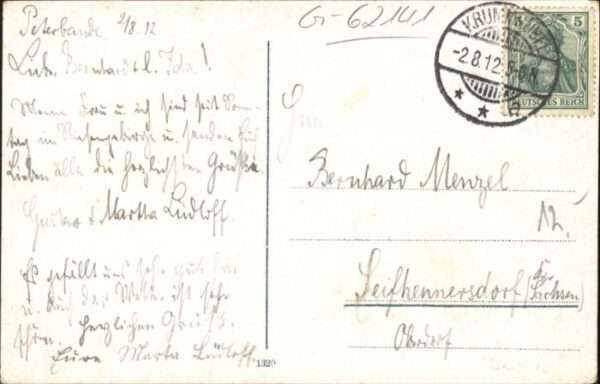 Peterbaude 2/8.12
G-62141
Lieb. Bernhard + l. Ida!
Meine Frau u. ich sind seit Sonn-
tag im Riesengebirge u. senden Euch
Lieben alle die herzlichsten Grüße.
Gustav + Martha Lüdloff.
Es gefällt uns sehr gut hier
u. auch das Wetter ist sehr
schön. herzlichen Gruß.
Eure Marta Lüdloff
1320
5
-2.8.12.
DEUTSCHES REICH
Bernhard Menzel
12.
Seifhennersdorf (Sachsen)
Oberdorf